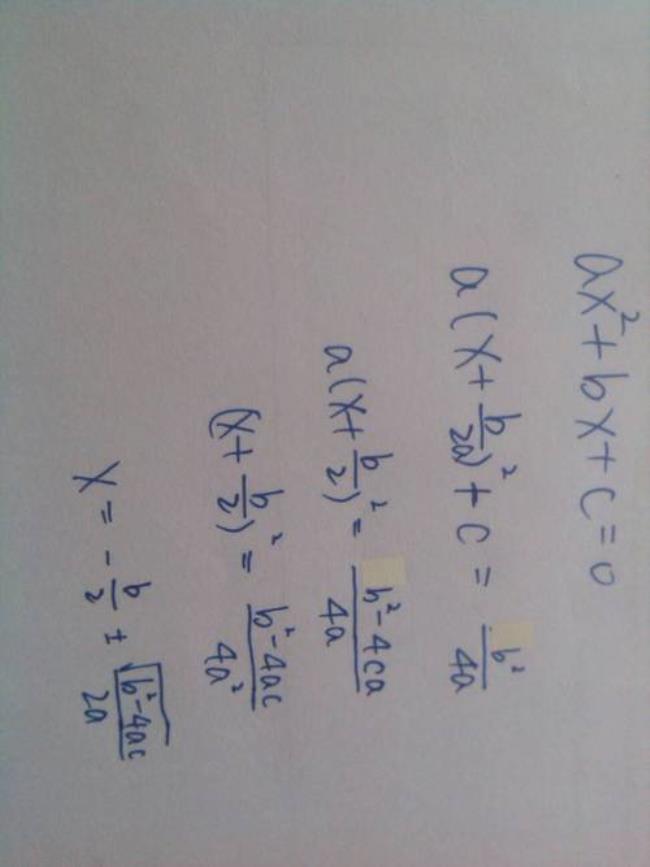 ax²+bx+c=0
a(x+b/2a)²+c=b²/4a
a(x+b/2)²=b²-4ca/4a
(x+b/2)²=b²-4ac/4a²
x=-b/2±√b²-4ac/2a